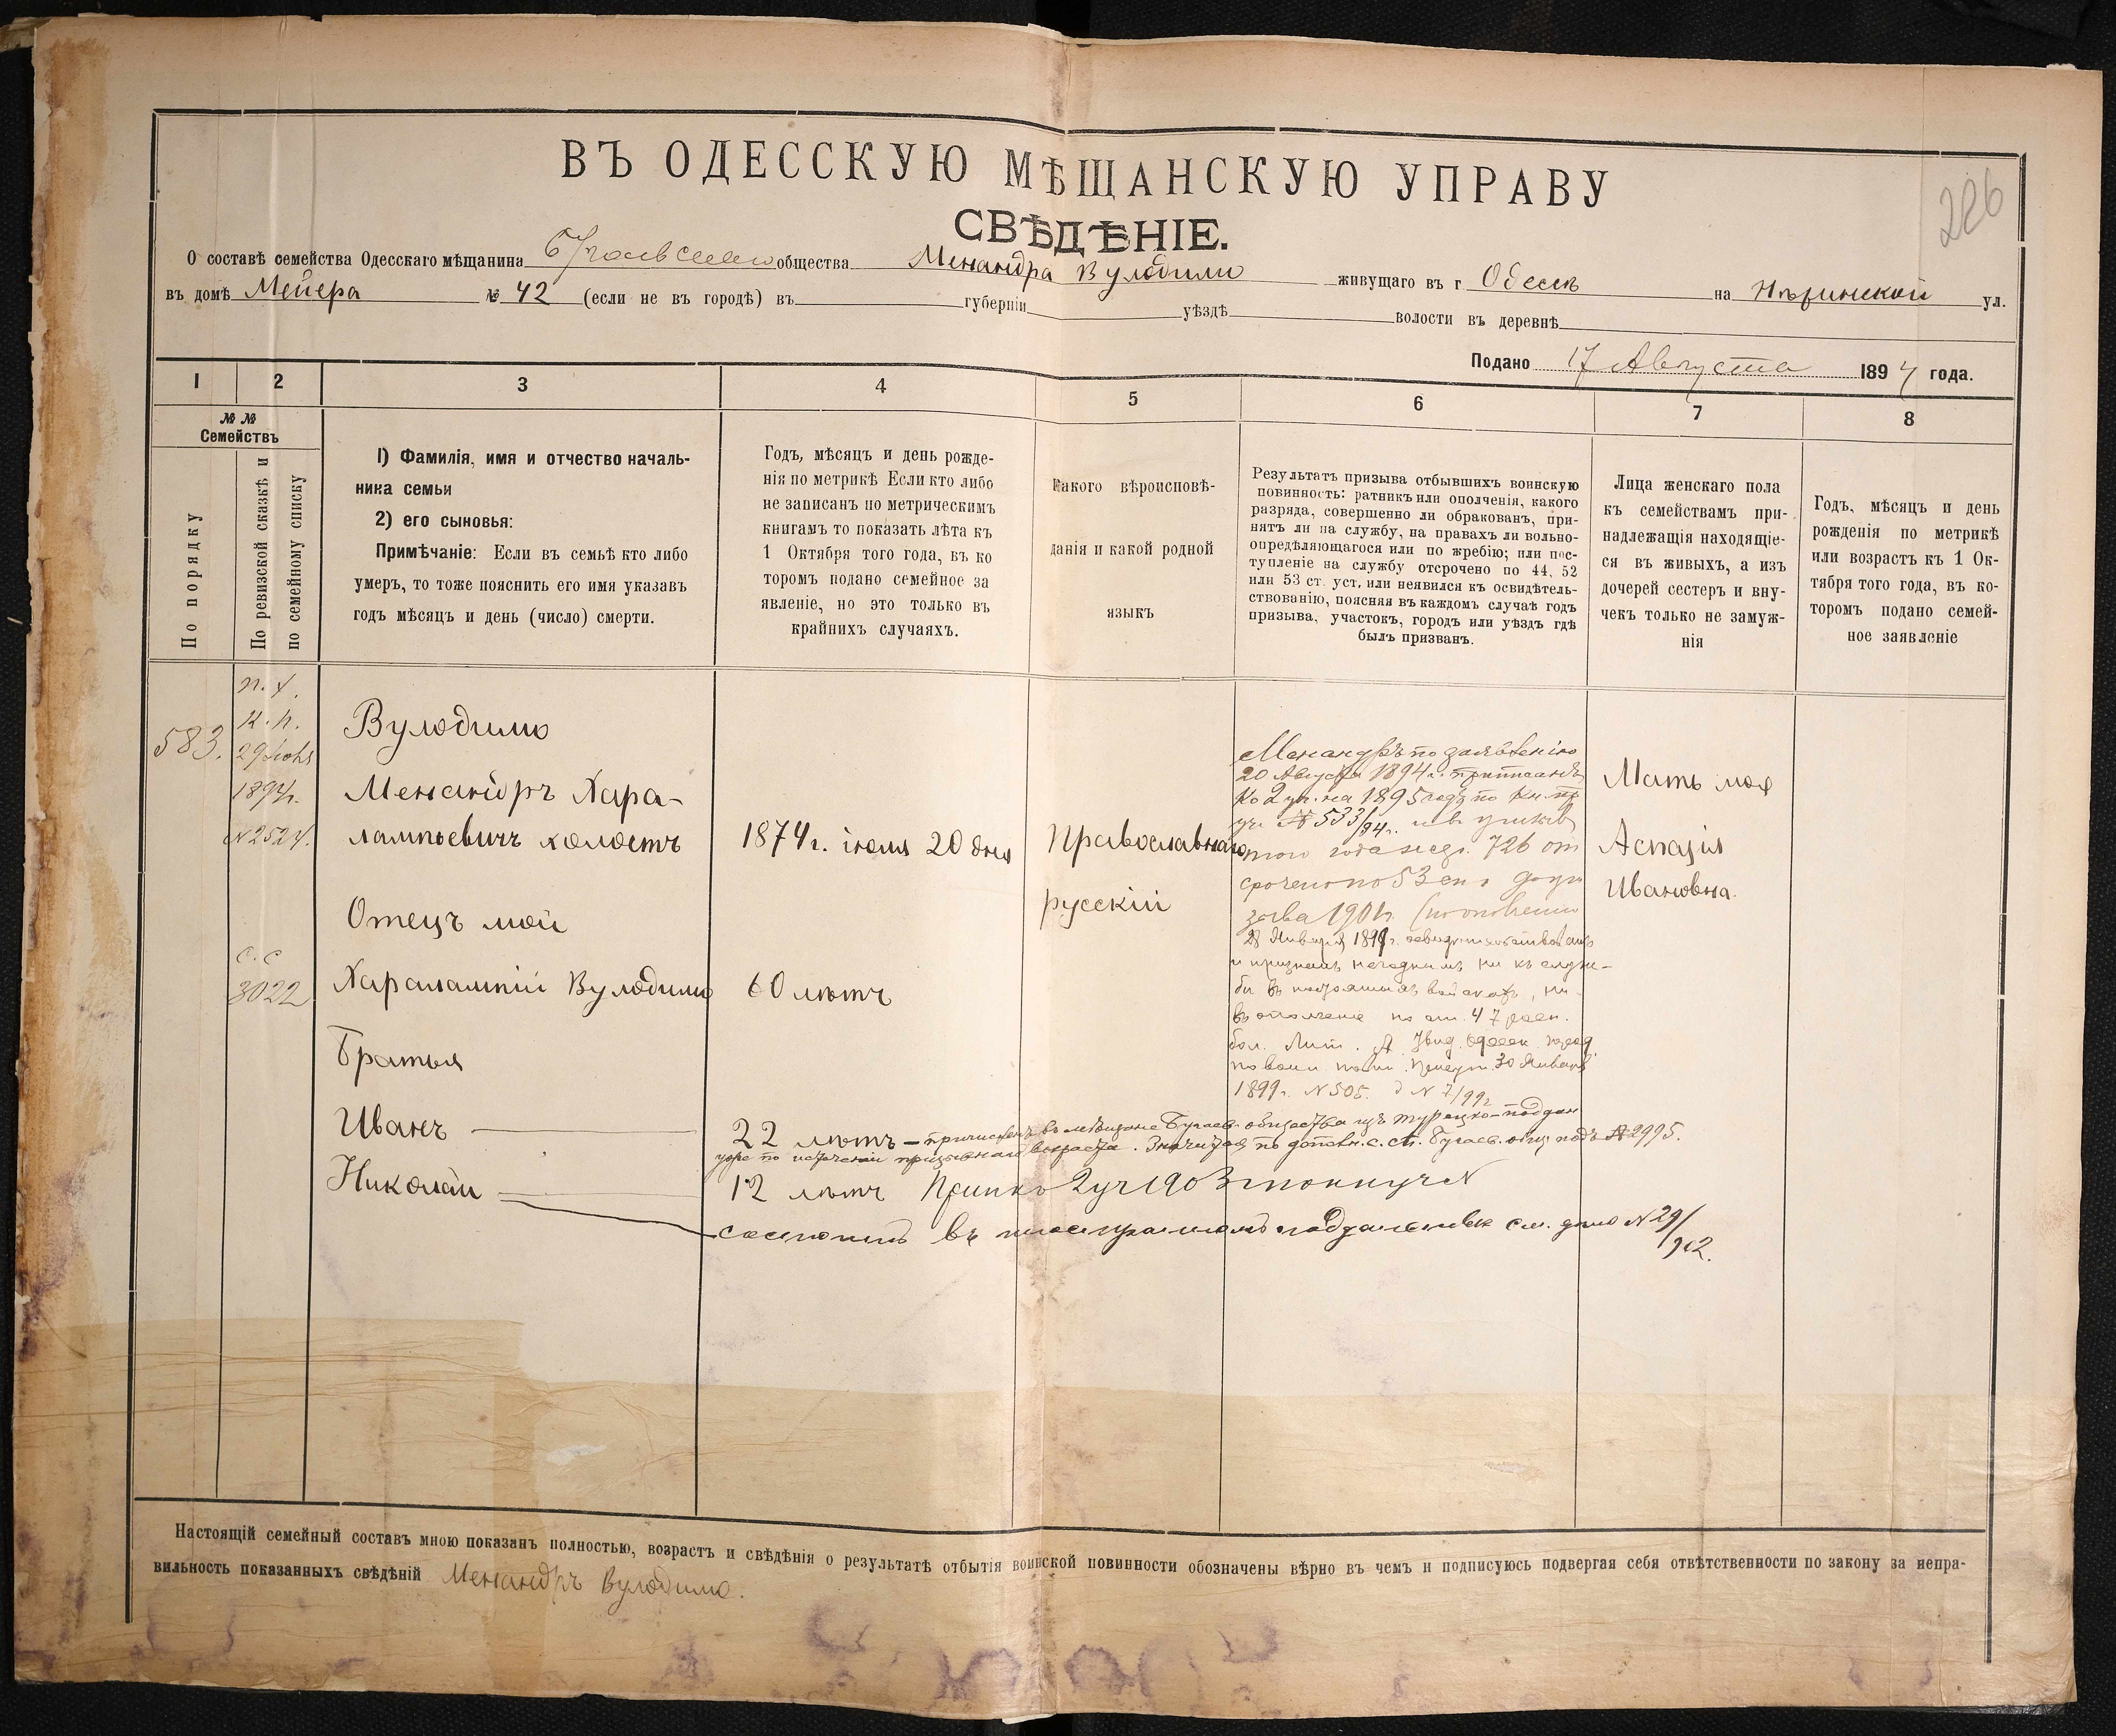 226
ВЪ ОДЕССКУЮ МѢЩАНСКУЮ УПРАВУ
СВѢДѢНІЕ.
О составѣ семейства Одесскаго мѣщанина общества Менандра Вулодимо живущаго въ г Одессѣ
въ домѣ Мейера № 42 (если не въ городѣ) въ губерніи уѣздѣ волости въ деревнѣ на Нѣжинской ул.
Подано 17 Августа 1894 года.
1 2 3 4 5 6 7 8
№ №
Семействъ
По порядку
По ревизской сказкѣ и
по семейному списку
1) Фамилія, имя и отчество началь-
ника семьи
2) его сыновья:
Примѣчаніе: Если въ семьѣ кто либо
умеръ, то тоже пояснить его имя указавъ
годъ мѣсяцъ и день (число) смерти.
Годъ, мѣсяцъ и день рожде-
нія по метрикѣ Если кто либо
не записанъ по метрическимъ
книгамъ то показать лѣта къ
1 Октября того года, въ ко
торомъ подано семейное за
явленіе, но это только въ
крайнихъ случаяхъ.
Какого вѣроисповѣ-
данія и какой родной
языкъ
Результатъ призыва отбывшихъ воинскую
повинность: ратникъ или ополченія, какого
разряда, совершенно ли обракованъ, при-
нятъ ли на службу, на правахъ ли вольно-
опредѣляющагося или по жребію; или пос-
тупленіе на службу отсрочено по 44, 52
или 53 ст. уст. или неявился къ освидѣтель-
ствованію, поясняя въ каждомъ случаѣ годъ
призыва, участокъ, городъ или уѣздъ гдѣ
былъ призванъ.
Лица женскаго пола
къ семействамъ при-
надлежащія находящіе-
ся въ живыхъ, а изъ
дочерей сестеръ и вну-
чекъ только не замуж-
нія
Годъ, мѣсяцъ и день
рожденія по метрикѣ
или возрастъ къ 1 Ок-
тября того года, въ ко-
торомъ подано семей-
ное заявленіе
583.
29 Іюня
1894г.
№2524.
с.с
3022
Вулодимо
Менандръ Хара-
лампьевичъ холостъ
Отецъ мой
Харалампій Вулодимо
Братья
Иванъ
Николай
1874г. іюля 20 дня
60 лѣтъ
Православнаго
русскій
Менандръ по заявленію
20 Августа 1894г. приписанъ
ко 2 уч. на 1895 годъ по
№ 533/94г.
726
53 ст.
1901г.
28 Января 1899г. освидѣтельствованъ
и признанъ негоднымъ ни къ служ-
бѣ въ постоянныхъ войскахъ, ни
въ ополченіе по ст. 47 росп.
бол. Лит. А Увѣд. Одесск. город
по воин. повин. Присут. 30 Января
1899г. №505. д №7/99г
Мать моя
Аспазія
Ивановна.
22 лѣтъ – причисленъ въ мѣщане Бугаев. общества изъ турецко-поддан
уже по истеченіи призывнаго возраста. Значится по дополн. с. сп. Бугаев. общ. подъ №2995.
12 лѣтъ
состоитъ въ иностранномъ подданствѣ см. дѣло №29/902.
Настоящій семейный составъ мною показанъ полностью, возрастъ и свѣдѣнія о результатѣ отбытія воинской повинности обозначены вѣрно въ чемъ и подписуюсь подвергая себя отвѣтственности по закону за непра-
вильность показанныхъ свѣдѣній Менандръ Вулодимо.